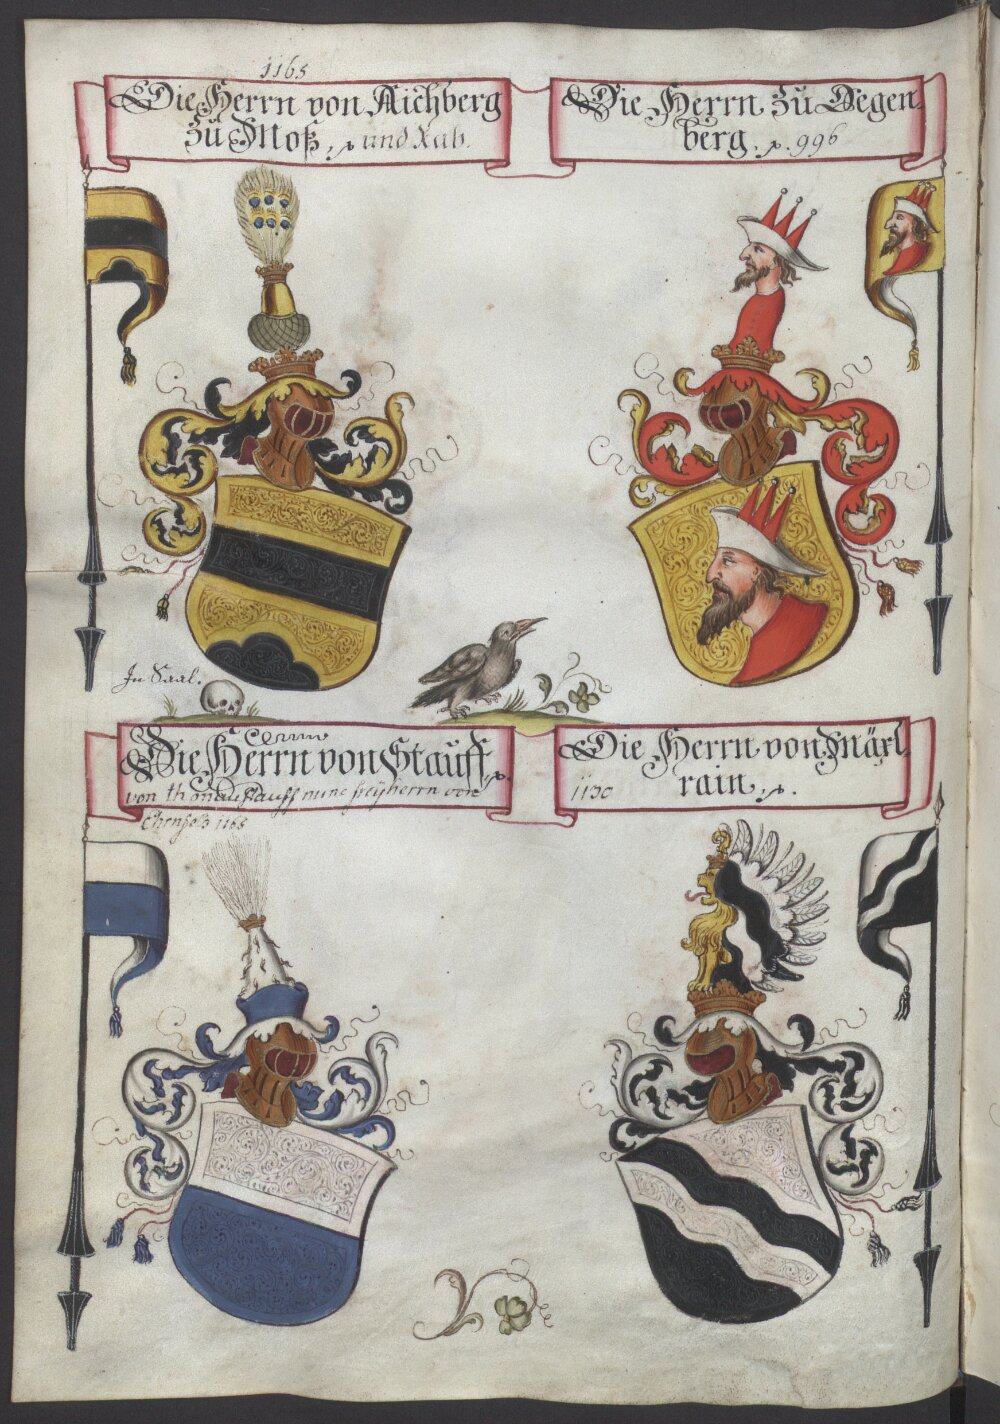 1165
Die Herrn von Aichberg
zu Moß, und Rab.
Die Herrn zu Degen
berg. 996
In Saal.
Die Herrn von Stauff
von nunc freyherrn von
1165
Die Herrn von Märl
rain.
1130